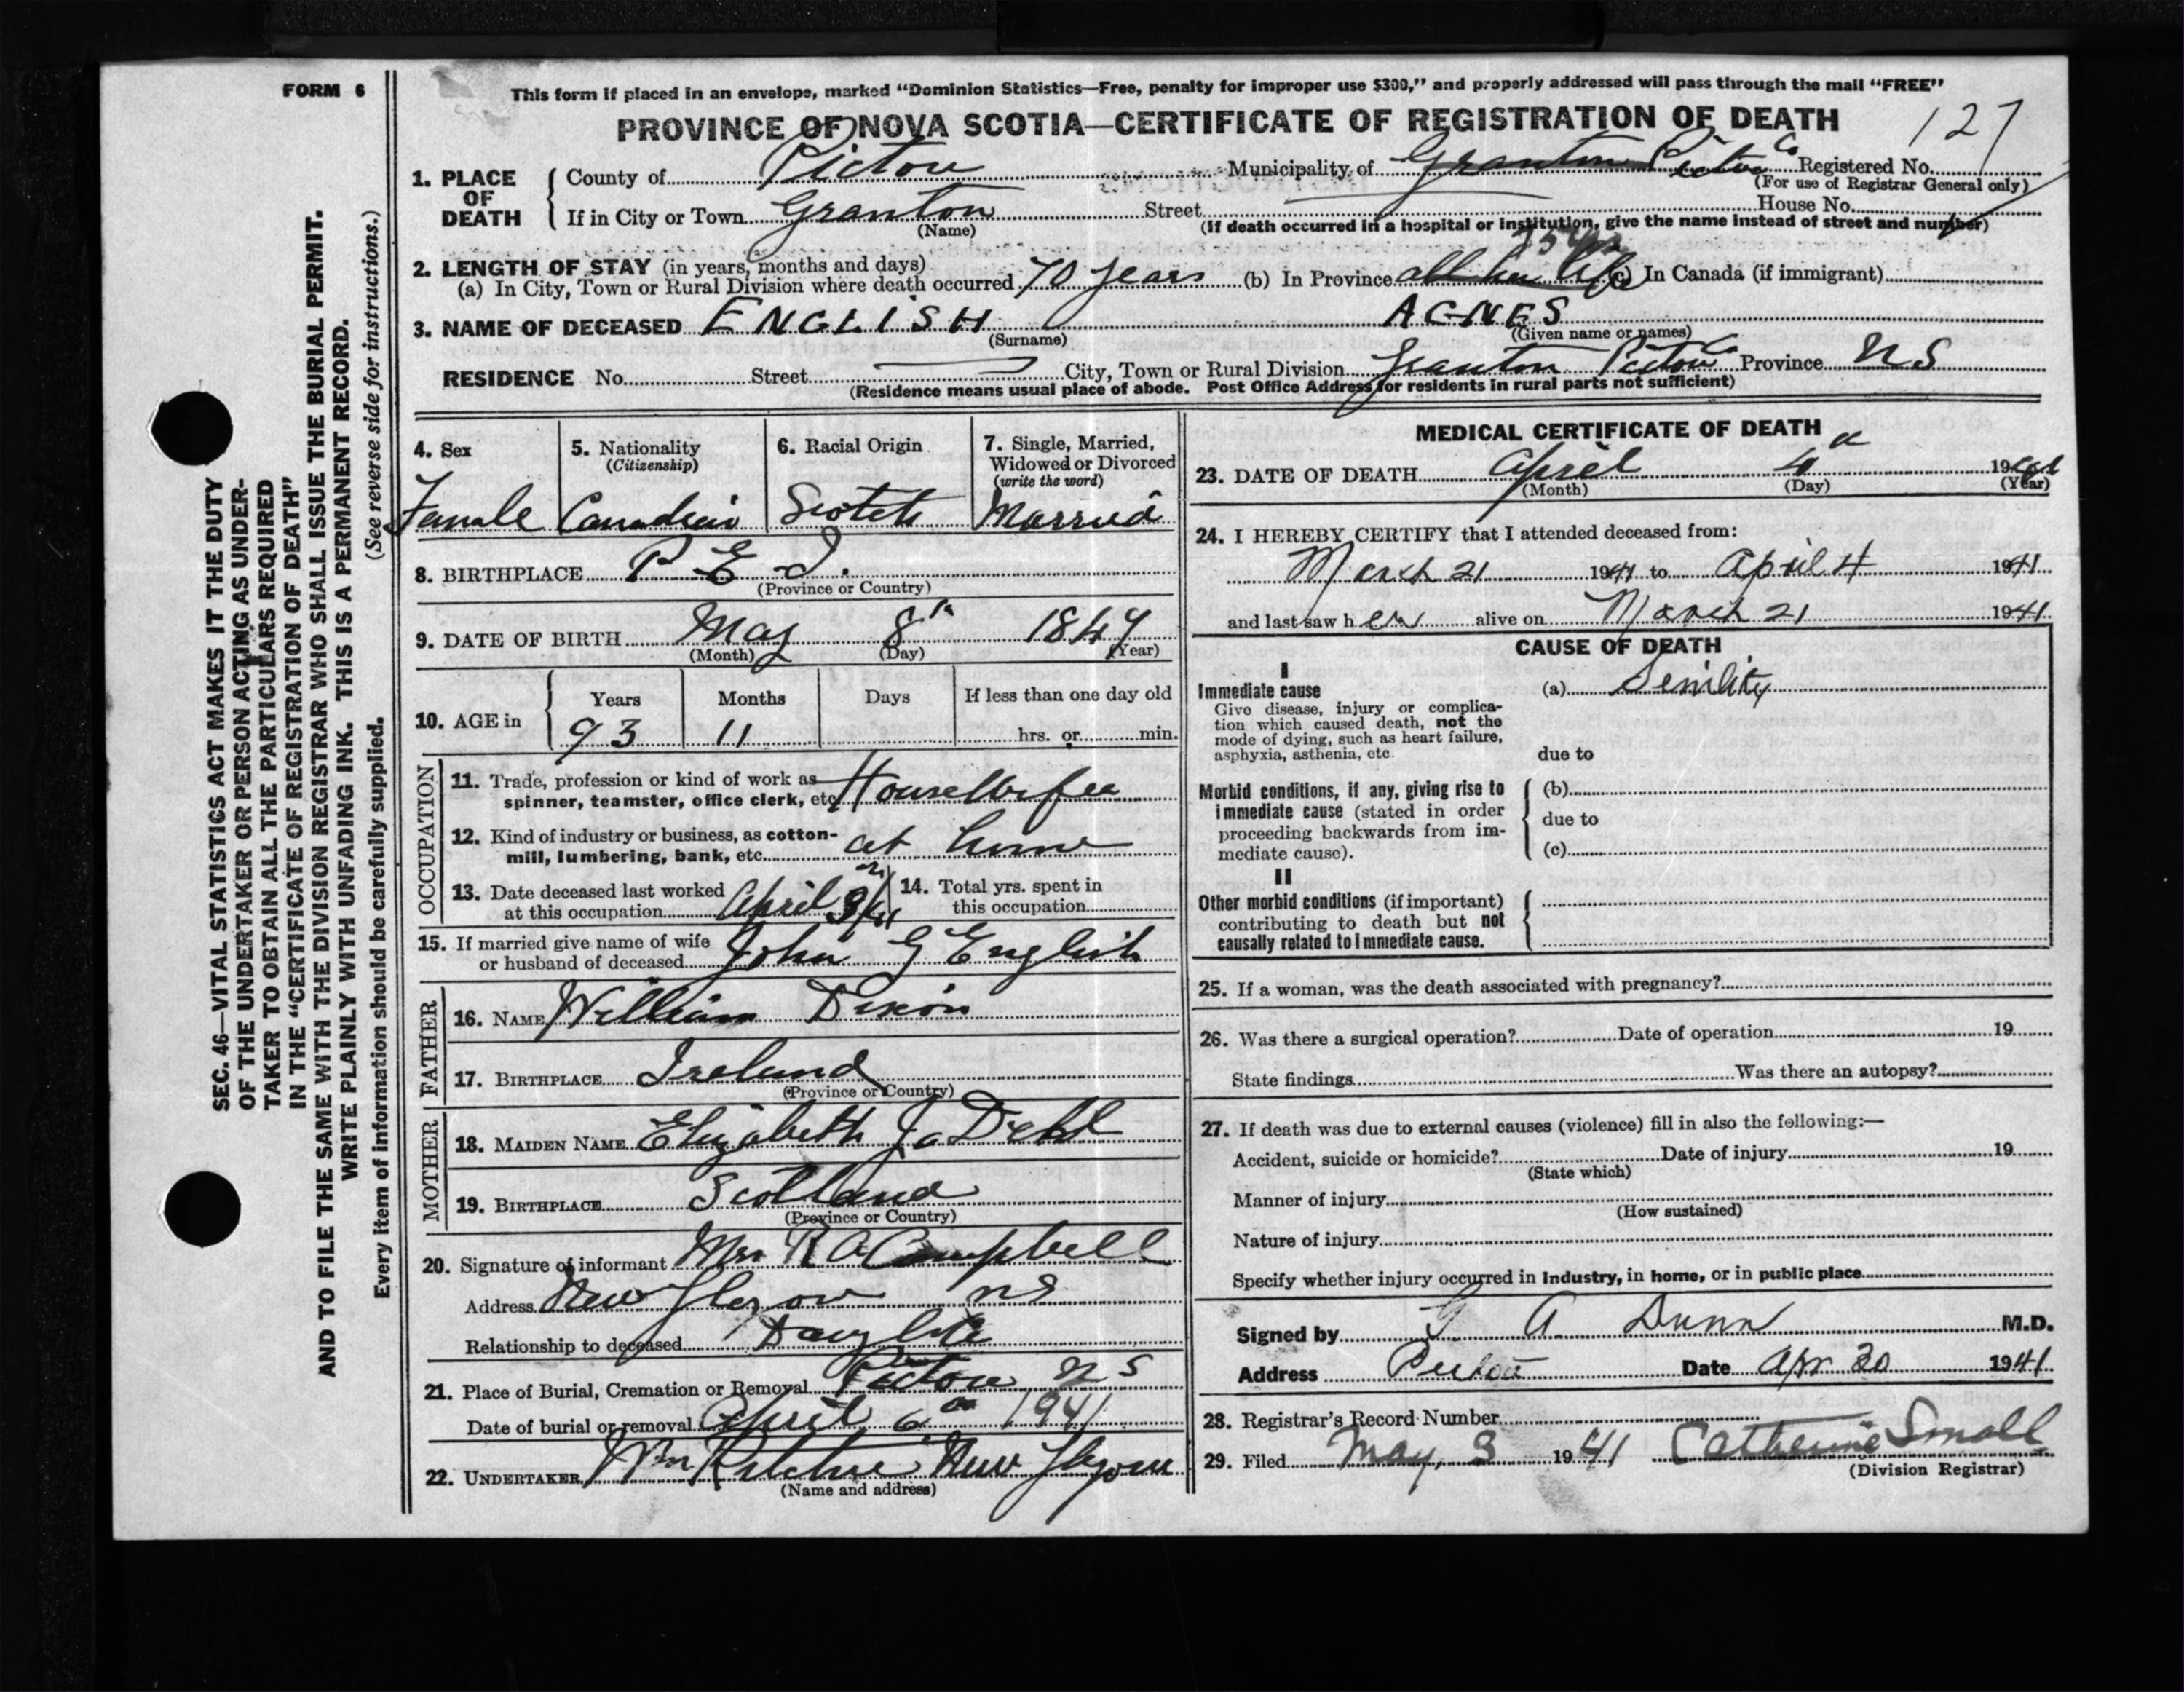 FORM 6
This form if placed in an envelope, marked "Dominion Statistics—Free, penalty for improper use $300," and properly addressed will pass through the mail "FREE"
PROVINCE OF NOVA SCOTIA—CERTIFICATE OF REGISTRATION OF DEATH
127
1. PLACE OF DEATH County of Pictou Municipality of Granton Pictou Co Registered No.
(For use of Registrar General only)
If in City or Town Granton Street House No.
(Name) (If death occurred in a hospital or institution, give the name instead of street and number)
2. LENGTH OF STAY (in years, months and days)
(a) In City, Town or Rural Division where death occurred 70 years (b) In Province all her life (c) In Canada (if immigrant)
3. NAME OF DECEASED ENGLISH AGNES
(Surname) (Given name or names)
RESIDENCE No. Street City, Town or Rural Division Granton Pictou Co Province NS
(Residence means usual place of abode. Post Office Address for residents in rural parts not sufficient)
SEC. 46—VITAL STATISTICS ACT MAKES IT THE DUTY
OF THE UNDERTAKER OR PERSON ACTING AS UNDER-
TAKER TO OBTAIN ALL THE PARTICULARS REQUIRED
IN THE "CERTIFICATE OF REGISTRATION OF DEATH"
AND TO FILE THE SAME WITH THE DIVISION REGISTRAR WHO SHALL ISSUE THE BURIAL PERMIT.
WRITE PLAINLY WITH UNFADING INK. THIS IS A PERMANENT RECORD.
Every item of information should be carefully supplied. (See reverse side for instructions.)
4. Sex
Female
5. Nationality
(Citizenship)
Canadian
6. Racial Origin
Scotch
7. Single, Married,
Widowed or Divorced
(write the word)
Married
8. BIRTHPLACE P E I.
(Province or Country)
9. DATE OF BIRTH May 8th 1847
(Month) (Day) (Year)
10. AGE in Years Months Days If less than one day old
93 11 hrs. or min.
OCCUPATION
11. Trade, profession or kind of work as
spinner, teamster, office clerk, etc. Housewife
12. Kind of industry or business, as cotton-
mill, lumbering, bank, etc. at home
13. Date deceased last worked
at this occupation April 3/41
14. Total yrs. spent in
this occupation
15. If married give name of wife
or husband of deceased John G English
FATHER
16. NAME William Dixon
17. BIRTHPLACE Ireland
(Province or Country)
MOTHER
18. MAIDEN NAME Elizabeth
19. BIRTHPLACE Scotland
(Province or Country)
20. Signature of informant Mrs R A Campbell
Address New Glasgow NS
Relationship to deceased Daughter
21. Place of Burial, Cremation or Removal Pictou NS
Date of burial or removal April 6th 1941
22. UNDERTAKER Wm Ritchie New Glasgow
(Name and address)
MEDICAL CERTIFICATE OF DEATH
23. DATE OF DEATH April 4th 1941
(Month) (Day) (Year)
24. I HEREBY CERTIFY that I attended deceased from:
March 21 1941 to April 4 1941
and last saw her alive on March 21 1941
CAUSE OF DEATH
I
Immediate cause
Give disease, injury or complica-
tion which caused death, not the
mode of dying, such as heart failure,
asphyxia, asthenia, etc.
(a) Senility
due to
Morbid conditions, if any, giving rise to
immediate cause (stated in order
proceeding backwards from im-
mediate cause).
(b)
due to
(c)
II
Other morbid conditions (if important)
contributing to death but not
causally related to immediate cause.
25. If a woman, was the death associated with pregnancy?
26. Was there a surgical operation? Date of operation 19
State findings Was there an autopsy?
27. If death was due to external causes (violence) fill in also the following:—
Accident, suicide or homicide? Date of injury 19
(State which)
Manner of injury
(How sustained)
Nature of injury
Specify whether injury occurred in industry, in home, or in public place
Signed by G A Dunn M.D.
Address Pictou Date Apr 30 1941
28. Registrar's Record Number
29. Filed May 3 1941 Catherine Small
(Division Registrar)